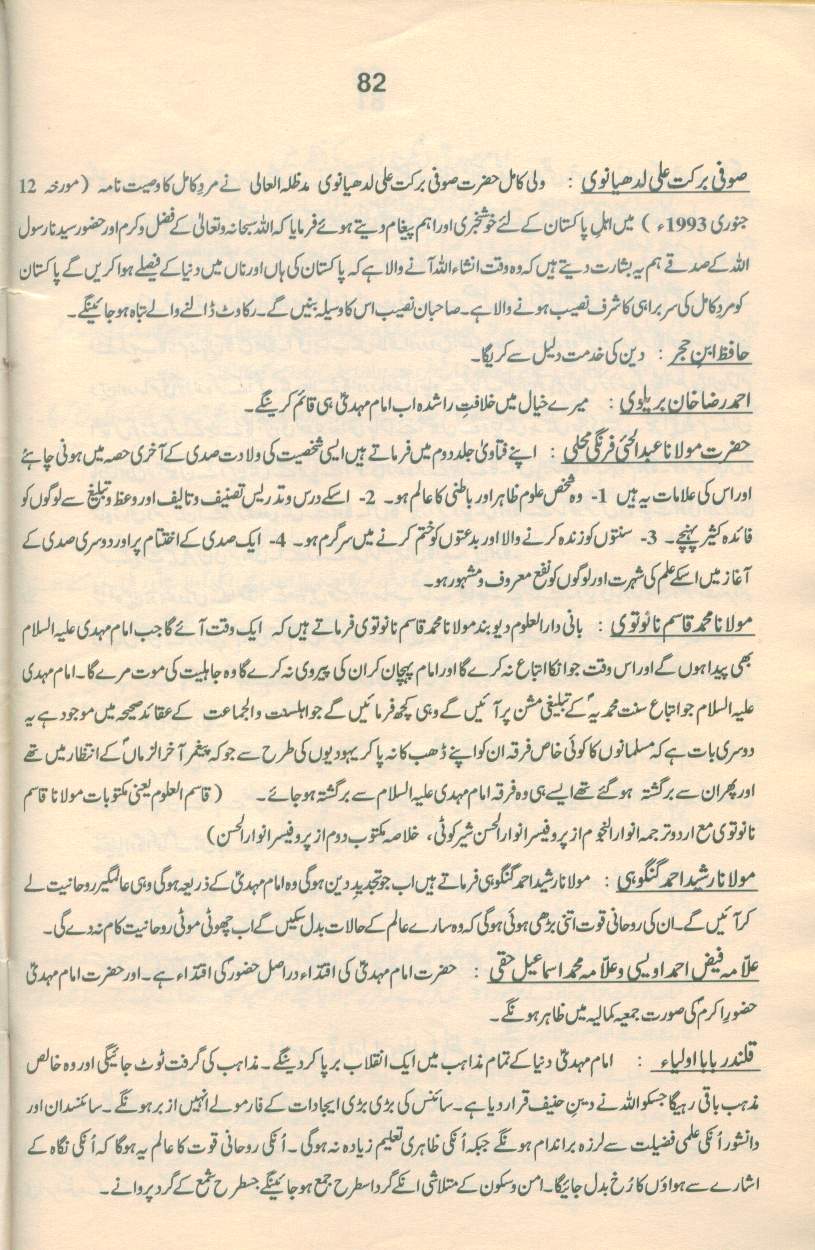 82
صوفی برکت علی لدھیانوی : ولی کامل حضرت صوفی برکت علی لدھیانوی مدظلہ العالی نے مردِ کامل کا وصیت نامہ (مورخہ 12
جنوری 1993ء ) میں اہلِ پاکستان کے لئے خوشخبری اور اہم پیغام دیتے ہوئے فرمایا کہ اللہ سبحانہ و تعالیٰ کے فضل و کرم اور حضور سیدنا رسول
اللہ کے صدقے ہم یہ بشارت دیتے ہیں کہ وہ وقت انشاء اللہ آنے والا ہے کہ پاکستان کی ہاں اور ناں میں دنیا کے فیصلے ہوا کریں گے پاکستان
کو مردِ کامل کی سربراہی کا شرف نصیب ہونے والا ہے۔ صاحبان نصیب اس کا وسیلہ بنیں گے۔ رکاوٹ ڈالنے والے تباہ ہو جائینگے۔
حافظ ابنِ حجر : دین کی خدمت دلیل سے کریگا۔
احمد رضا خان بریلوی : میرے خیال میں خلافتِ راشدہ اب امام مہدیؑ ہی قائم کرینگے۔
حضرت مولانا عبدالحئی فرنگی محلی : اپنے فتاویٰ جلد دوم میں فرماتے ہیں ایسی شخصیت کی ولادت صدی کے آخری حصہ میں ہونی چاہئے
اور اس کی علامات یہ ہیں 1- وہ شخص علوم ظاہر اور باطنی کا عالم ہو۔ 2- اسکے درس و تدریس تصنیف و تالیف اور وعظ و تبلیغ سے لوگوں کو
فائدہ کثیر پہنچے۔ 3- سنتوں کو زندہ کرنے والا اور بدعتوں کو ختم کرنے میں سرگرم ہو۔ 4- ایک صدی کے اختتام پر اور دوسری صدی کے
آغاز میں اسکے علم کی شہرت اور لوگوں کو نفع معروف و مشہور ہو۔
مولانا محمد قاسم نانوتوی : بانی دارالعلوم دیوبند مولانا محمد قاسم نانوتوی فرماتے ہیں کہ ایک وقت آئے گا جب امام مہدی علیہ السلام
بھی پیدا ہوں گے اور اس وقت جو انکا اتباع نہ کرے گا اور امام پہچان کر ان کی پیروی نہ کرے گا وہ جاہلیت کی موت مرے گا۔ امام مہدی
علیہ السلام جو اتباع سنت محمدیہؐ کے تبلیغی مشن پر آئیں گے وہی کچھ فرمائیں گے جو اہلسنت والجماعت کے عقائد صحیحہ میں موجود ہے یہ
دوسری بات ہے کہ مسلمانوں کا کوئی خاص فرقہ ان کو اپنے ڈھب کا نہ پا کر یہودیوں کی طرح سے جو کہ پیغمبر آخر الزماںؐ کے انتظار میں تھے
اور پھر ان سے برگشتہ ہو گئے تھے ایسے ہی وہ فرقہ امام مہدی علیہ السلام سے برگشتہ ہو جائے۔ (قاسم العلوم یعنی مکتوبات مولانا قاسم
نانوتوی مع اردو ترجمہ انوار النجوم از پروفیسر انوار الحسن شیر کوٹی، خلاصہ مکتوب دوم از پروفیسر انوار الحسن)
مولانا رشید احمد گنگوہی : مولانا رشید احمد گنگوہی فرماتے ہیں اب جو تجدیدِ دین ہوگی وہ امام مہدیؑ کے ذریعہ ہوگی وہی عالمگیر روحانیت لے
کر آئیں گے۔ ان کی روحانی قوت اتنی بڑھی ہوئی ہوگی کہ وہ سارے عالم کے حالات بدل سکیں گے اب چھوٹی موٹی روحانیت کام نہ دے گی۔
علامہ فیض احمد اویسی و علامہ محمد اسماعیل حقی : حضرت امام مہدیؑ کی اقتداء دراصل حضورؐ کی اقتداء ہے۔ اور حضرت امام مہدیؑ
حضورِ اکرمؐ کی صورت جمعیہ کمالیہ میں ظاہر ہونگے۔
قلندر بابا اولیاء : امام مہدیؑ دنیا کے تمام مذاہب میں ایک انقلاب برپا کر دینگے۔ مذاہب کی گرفت ٹوٹ جائیگی اور وہ خالص
مذہب باقی رہیگا جسکو اللہ نے دینِ حنیف قرار دیا ہے۔ سائنس کی بڑی بڑی ایجادات کے فارمولے انہیں ازبر ہونگے۔ سائنسدان اور
دانشور اُنکی علمی فضیلت سے لرزہ براندام ہونگے جبکہ اُنکی ظاہری تعلیم زیادہ نہ ہوگی۔ اُنکی روحانی قوت کا عالم یہ ہوگا کہ اُنکی نگاہ کے
اشارے سے ہواؤں کا رُخ بدل جائیگا۔ امن و سکون کے متلاشی انکے گرد اسطرح جمع ہو جائینگے جسطرح شمع کے گرد پروانے۔